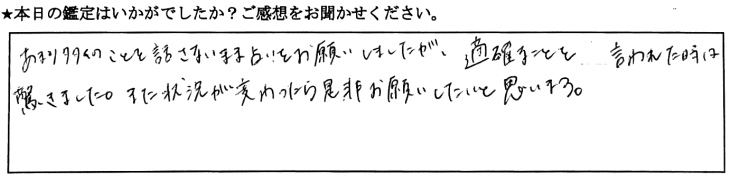 ★本日の鑑定はいかがでしたか？ご感想をお聞かせください。
あまり多くのことを話さないまま占いをお願いしましたが、適確なことを 言われた時は
驚きました。また状況が変わったら是非お願いしたいと思います。